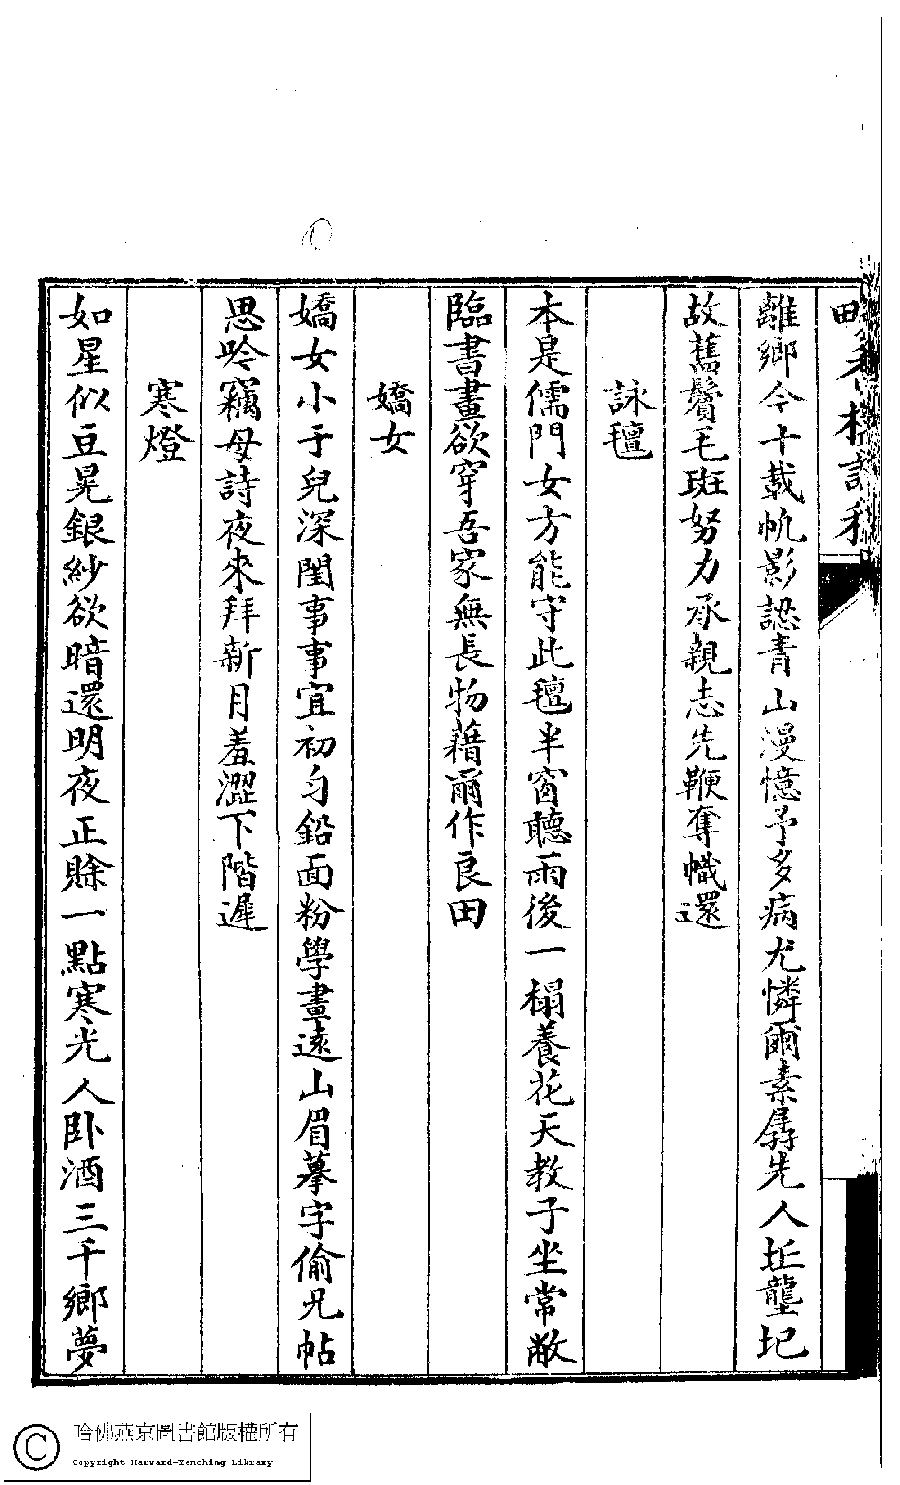 離鄉今十載帆影認青山漫憶予多病尤憐爾素孱先人坵壟圮
故舊鬢毛斑努力承親志先鞭奪幟還
詠氊
本是儒門女方能守此氊半窗聽雨後一榻養花天教子坐常敝
臨書畫欲穿吾家無長物藉爾作良田
嬌女
嬌女小于兒深閨事事宜初勻鉛面粉學畫遠山眉摹字偷兄帖
思吟竊母詩夜來拜新月羞澀下階遲
寒燈
如星似豆晃銀紗欲暗還明夜正賒一點寒光人卧酒三千鄉夢
哈佛燕京圖書館版權所有
Copyright Harvard-Yenching Library